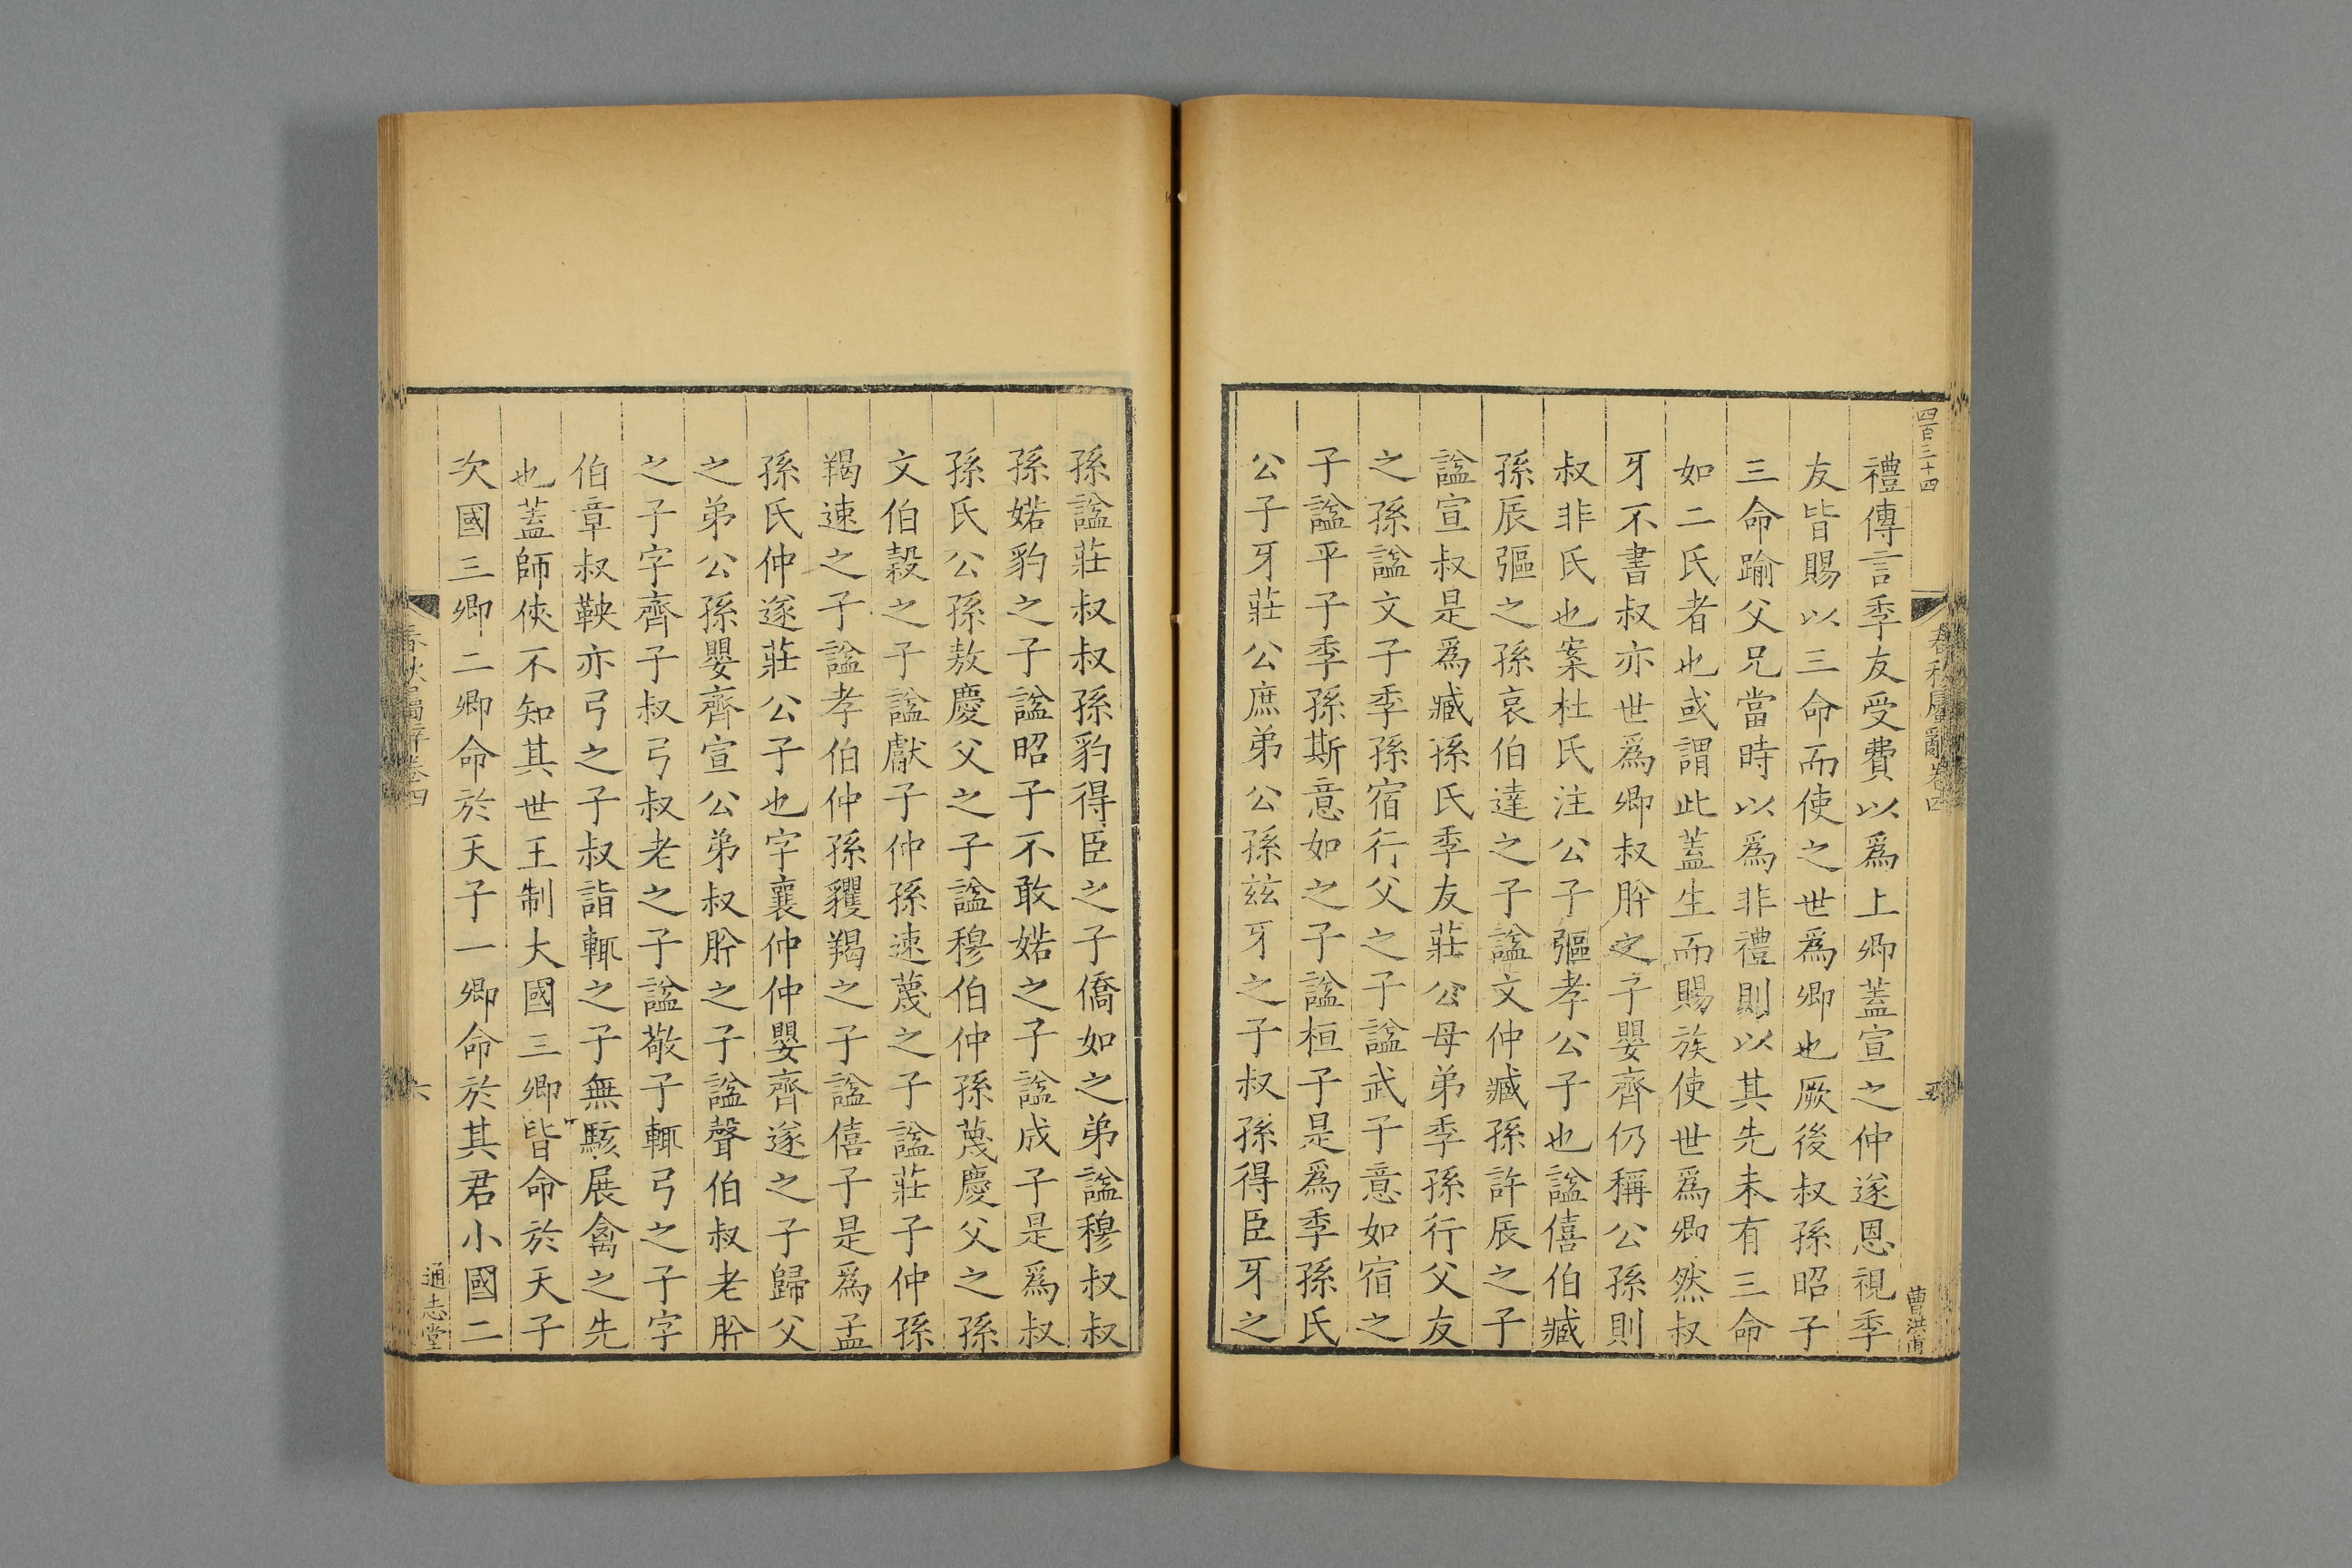 四百三十四
春秋屬辭卷四
五
曹洪甫
禮傳言季友受費以爲上卿蓋宣之仲遂恩視季
友皆賜以三命而使之世爲卿也厥後叔孫昭子
三命踰父兄當時以爲非禮則以其先未有三命
如二氏者也或謂此蓋生而賜族使世爲卿然叔
牙不書叔亦世爲卿叔肸之子嬰齊仍稱公孫則
叔非氏也案杜氏注公子彄孝公子也諡僖伯臧
孫辰彄之孫哀伯達之子諡文仲臧孫許辰之子
諡宣叔是爲臧孫氏季友莊公母弟季孫行父友
之孫諡文子季孫宿行父之子諡武子意如宿之
子諡平子季孫斯意如之子諡桓子是爲季孫氏
公子牙莊公庶弟公孫兹牙之子叔孫得臣牙之
孫諡莊叔叔孫豹得臣之子僑如之弟諡穆叔叔
孫婼豹之子諡昭子不敢婼之子諡成子是爲叔
孫氏公孫敖慶父之子諡穆伯仲孫蔑慶父之孫
文伯穀之子諡獻子仲孫速蔑之子諡莊子仲孫
羯速之子諡孝伯仲孫貜羯之子諡僖子是爲孟
孫氏仲遂莊公子也字襄仲仲嬰齊遂之子歸父
之弟公孫嬰齊宣公弟叔肸之子諡聲伯叔老肸
之子字齊子叔弓叔老之子諡敬子輒弓之子字
伯章叔鞅亦弓之子叔詣輒之子無駭展禽之先
也蓋師俠不知其世王制大國三卿皆命於天子
次國三卿二卿命於天子一卿命於其君小國二
春秋屬辭卷四
六
通志堂